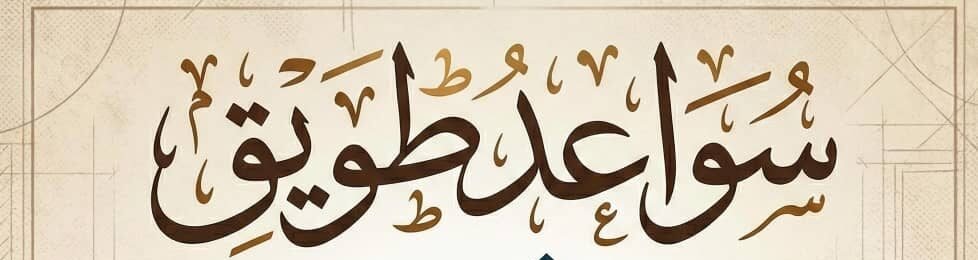 سُوَاعِدُ طُوَيْقِ